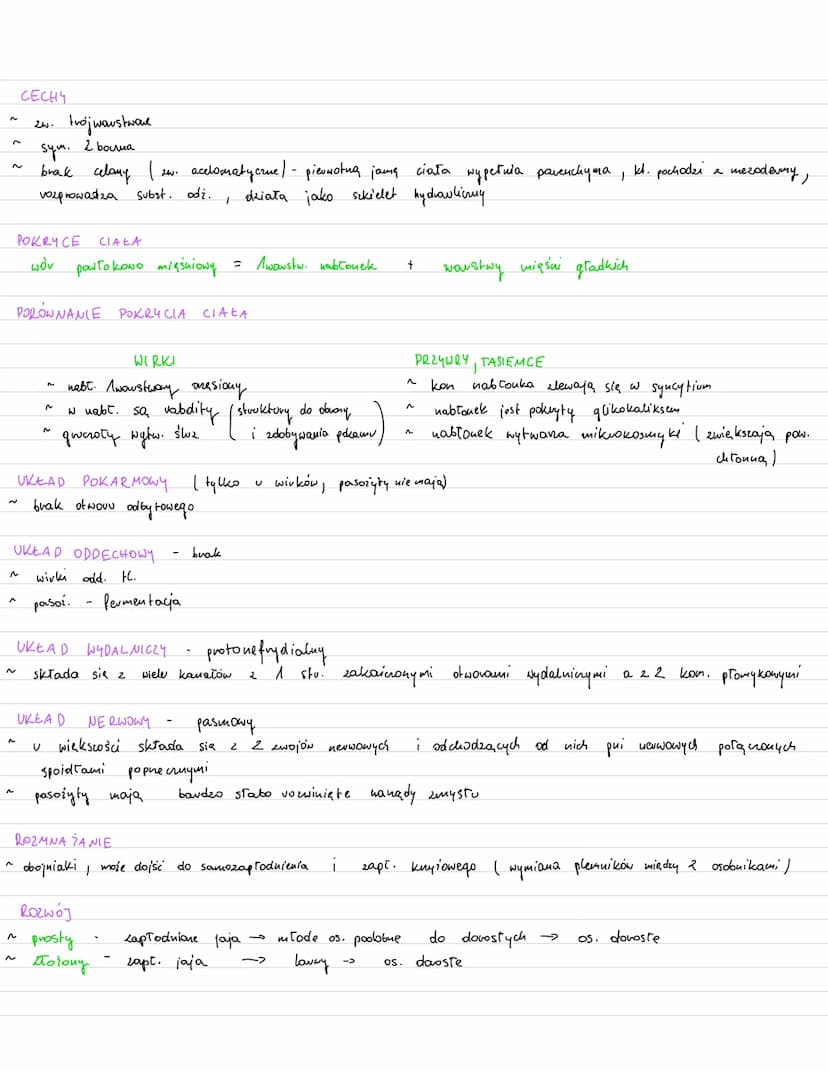 CECHY
~ zw. trójwarstwowe
~ sym. 2boczna
~ brak celomy ( zw. acelomatyczne) - pierwotną jamę ciała wypełnia parenchyma, kt. pochodzi z mezodermy,
rozprowadza subst. odż., działa jako szkielet hydrauliczny
POKRYCE CIAŁA
wór powłokowo mięśniowy = 1warstw. nabłonek + warstwy mięśni gładkich
PORÓWNANIE POKRYCIA CIAŁA
WIRKI
~ nabł. 1warstwowy orzęsiony
~ w nabł. są rabdity (struktury do obrony
i zdobywania pokarmu)
~ gruczoły wytw. śluz
PRZYWRY, TASIEMCE
~ kom nabłonka zlewają się w syncytium
~ nabłonek jest pokryty glikokaliksem
~ nabłonek wytwarza mikrokosmyki ( zwiększają pow.
chłonną)
UKŁAD POKARMOWY ( tylko u wirków, pasożyty nie mają)
~ brak otworu odbytowego
UKŁAD ODDECHOWY - brak
~ wirki odd. tl.
~ pasoż. - fermentacja
UKŁAD WYDALNICZY - protonefrydialny
~ składa się z wielu kanałów z 1 str. zakończonymi otworami wydalniczymi a z 2 kom. płomykowymi
UKŁAD NERWOWY - pasmowy
~ u większości składa się z 2 zwojów nerwowych i odchodzących od nich pni nerwowych połączonych
spoidłami poprzecznymi
~ pasożyty mają bardzo słabo rozwinięte narządy zmysłu
ROZMNAŻANIE
~ obojniaki, może dojść do samozapłodnienia i zapł. krzyżowego ( wymiana plemników między 2 osobnikami)
ROZWÓJ
~ prosty - zapłodnione jaja → młode os. podobne do dorosłych → os. dorosłe
~ złożony - zapł. jaja → larwy → os. dorosłe